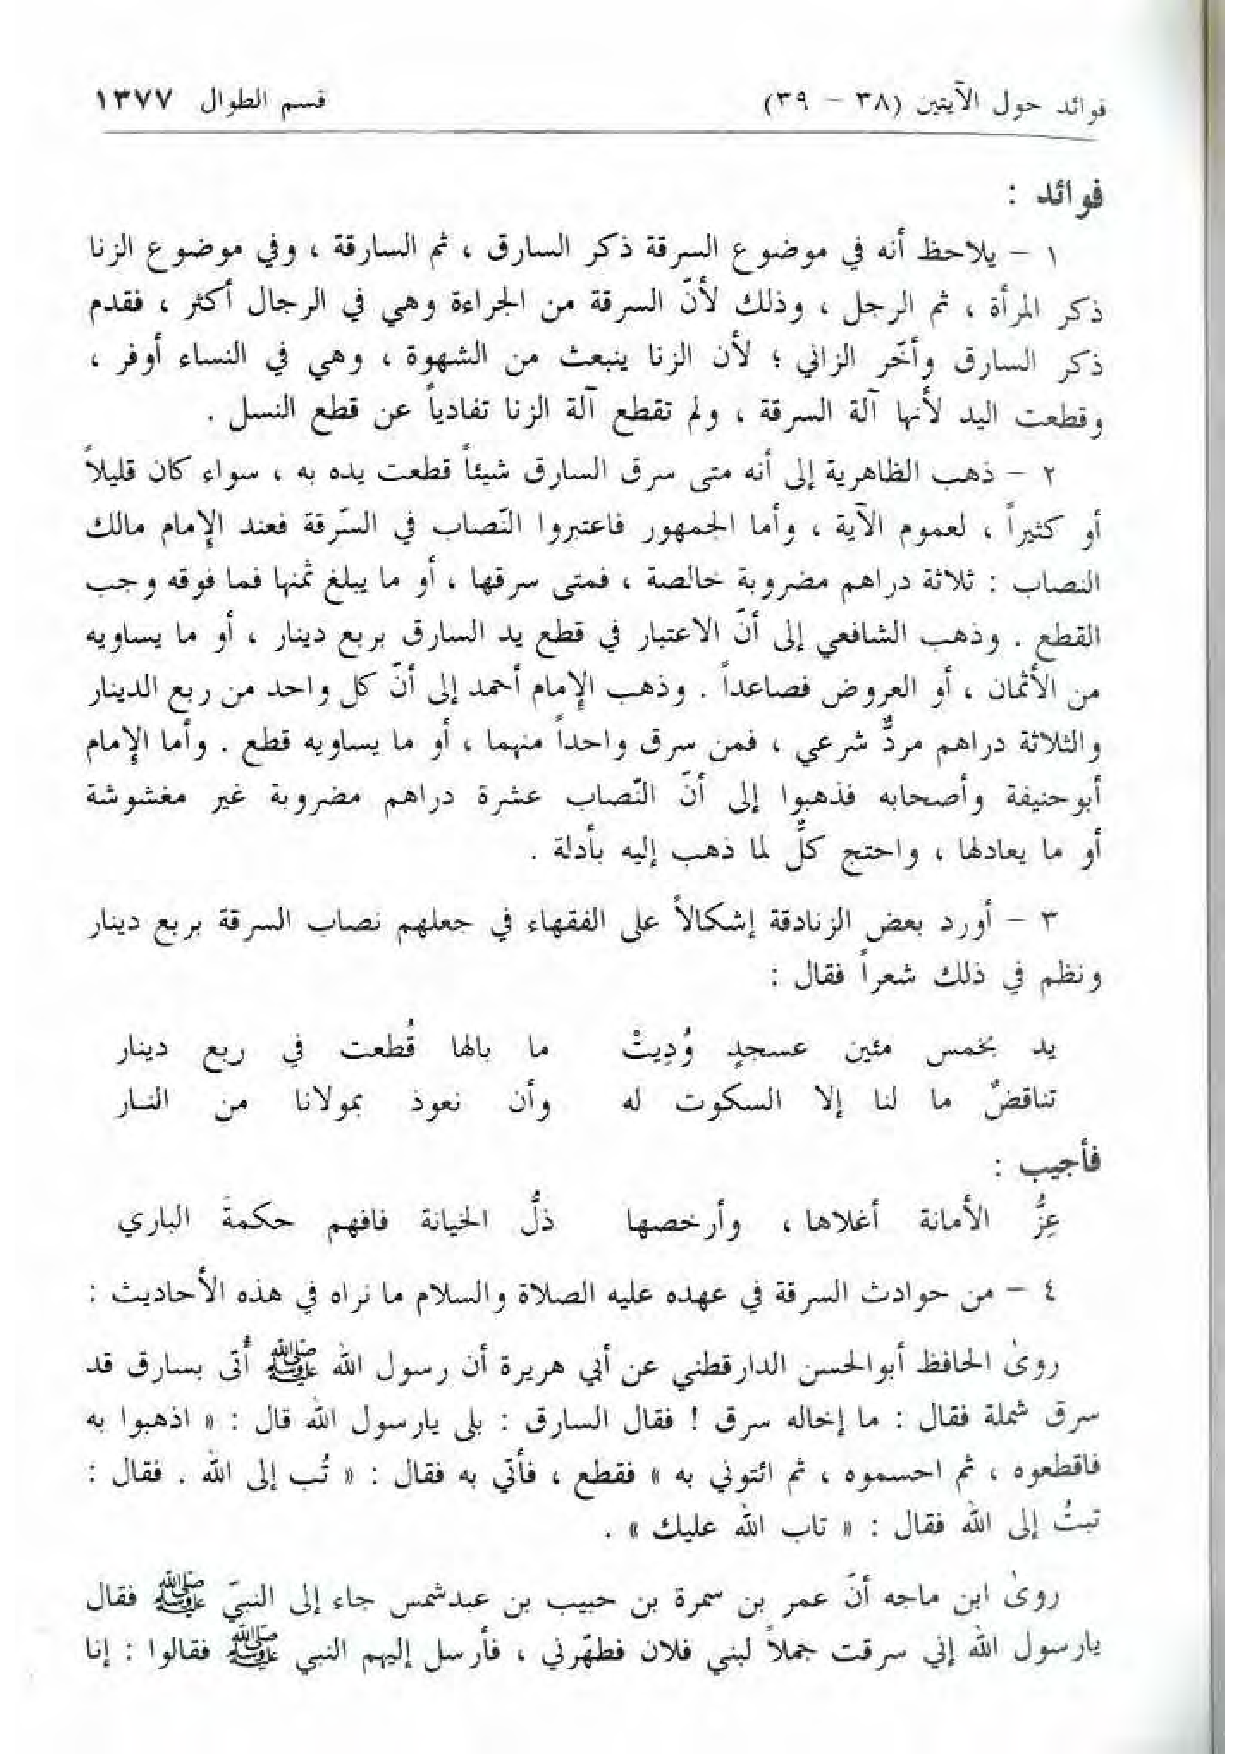 فوائد حول الآيتين (٣٨ – ٣٩) قسم الطوال ١٣٧٧
فوائد :
١ – يلاحظ أنه في موضوع السرقة ذكر السارق ، ثم السارقة ، وفي موضوع الزنا
ذكر المرأة ، ثم الرجل ، وذلك لأنّ السرقة من الجراءة وهي في الرجال أكثر ، فقدم
ذكر السارق وأخّر الزاني ؛ لأن الزنا ينبعث من الشهوة ، وهي في النساء أوفر ،
وقطعت اليد لأنها آلة السرقة ، ولم تقطع آلة الزنا تفادياً عن قطع النسل .
٢ – ذهب الظاهرية إلى أنه متى سرق السارق شيئاً قطعت يده به ، سواء كان قليلاً
أو كثيراً ، لعموم الآية ، وأما الجمهور فاعتبروا النّصاب في السّرقة فعند الإمام مالك
النصاب : ثلاثة دراهم مضروبة خالصة ، فمتى سرقها ، أو ما يبلغ ثمنها فما فوقه وجب
القطع . وذهب الشافعي إلى أنّ الاعتبار في قطع يد السارق بربع دينار ، أو ما يساويه
من الأثمان ، أو العروض فصاعداً . وذهب الإمام أحمد إلى أنّ كل واحد من ربع الدينار
والثلاثة دراهم مردٌّ شرعي ، فمن سرق واحداً منهما ، أو ما يساويه قطع . وأما الإمام
أبوحنيفة وأصحابه فذهبوا إلى أنّ النّصاب عشرة دراهم مضروبة غير مغشوشة
أو ما يعادلها ، واحتج كلٌّ لما ذهب إليه بأدلة .
٣ – أورد بعض الزنادقة إشكالاً على الفقهاء في جعلهم نصاب السرقة بربع دينار
ونظم في ذلك شعراً فقال :
يد بخمس مئين عسجدٍ وُدِيتْ ما بالها قُطعت في ربع دينار
تناقضٌ ما لنا إلا السكوت له وأن نعوذ بمولانا من النار
فأجيب :
عِزُّ الأمانة أغلاها ، وأرخصها ذلُّ الخيانة فافهم حكمةَ الباري
٤ – من حوادث السرقة في عهده عليه الصلاة والسلام ما نراه في هذه الأحاديث :
روىٰ الحافظ أبوالحسن الدارقطني عن أبي هريرة أن رسول الله ﷺ أُتى بسارق قد
سرق شملة فقال : ما إخاله سرق ! فقال السارق : بلى يارسول الله قال : « اذهبوا به
فاقطعوه ، ثم احسموه ، ثم ائتوني به » فقطع ، فأتي به فقال : « تُب إلى الله . فقال :
تبتُ إلى الله فقال : « تاب الله عليك » .
روىٰ ابن ماجه أنّ عمر بن سمرة بن حبيب بن عبدشمس جاء إلى النبيّ ﷺ فقال
يارسول الله إني سرقت جملاً لبني فلان فطهّرني ، فأرسل إليهم النبي ﷺ فقالوا : إنا